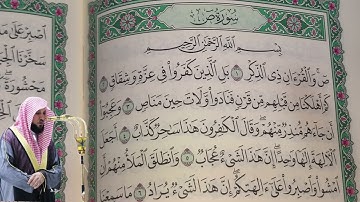 سُورَةُ صٓ
بِسْمِ اللَّهِ الرَّحْمَٰنِ الرَّحِيمِ
صٓ وَالْقُرْءَانِ ذِى الذِّكْرِ ١ بَلِ الَّذِينَ كَفَرُوا فِى عِزَّةٍ وَشِقَاقٍ ٢
كَمْ أَهْلَكْنَا مِن قَبْلِهِم مِّن قَرْنٍ فَنَادَوا وَّلَاتَ حِينَ مَنَاصٍ ٣ وَعَجِبُوا
أَن جَاءَهُم مُّنذِرٌ مِّنْهُمْ وَقَالَ الْكَافِرُونَ هَٰذَا سَاحِرٌ كَذَّابٌ ٤ أَجَعَلَ
الْآلِهَةَ إِلَٰهًا وَاحِدًا إِنَّ هَٰذَا لَشَىْءٌ عُجَابٌ ٥ وَانطَلَقَ الْمَلَأُ مِنْهُمْ أَنِ
امْشُوا وَاصْبِرُوا عَلَىٰ آلِهَتِكُمْ إِنَّ هَٰذَا لَشَىْءٌ يُرَادُ ٦ مَا سَمِعْنَا
اصْبِرْ عَلَىٰ
سَخَّرْنَا
مَحْشُورَةً